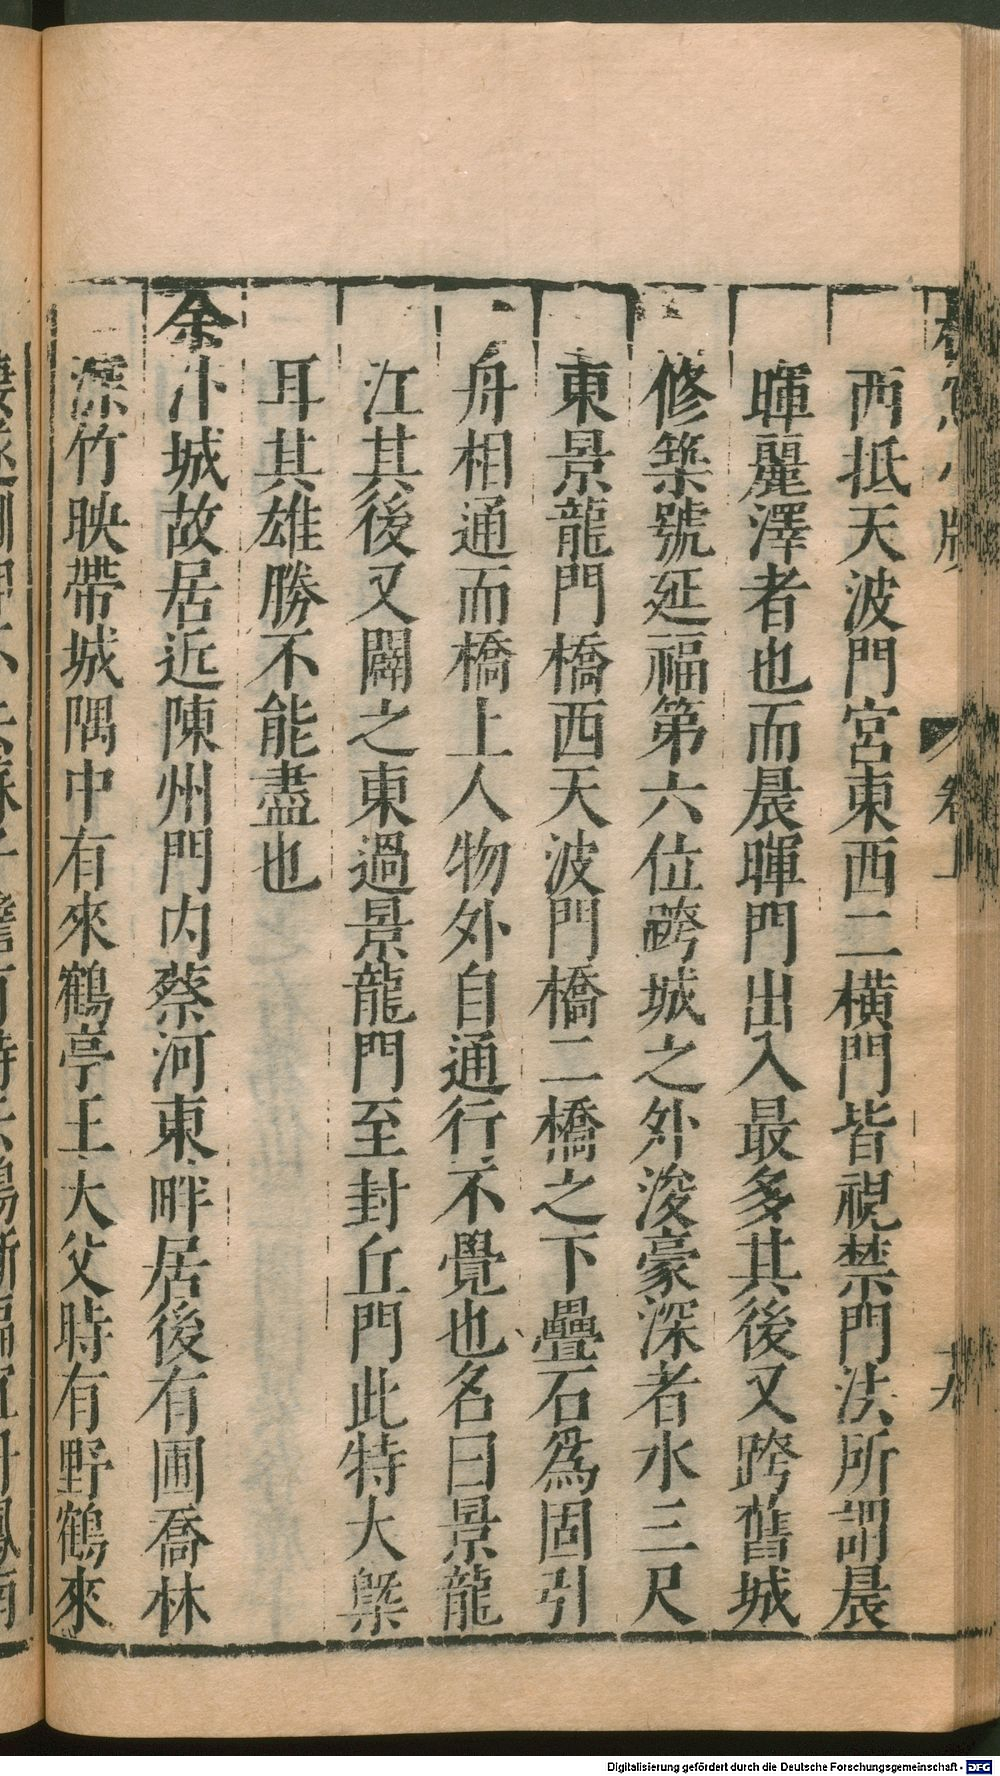 西抵天波門宮東西二橫門皆視禁門法所謂晨
暉麗澤者也而晨暉門出入最多其後又跨舊城
修築號延福第六位跨城之外浚豪深者水三尺
東景龍門橋西天波門橋二橋之下疊石爲固引
舟相通而橋上人物外自通行不覺也名曰景龍
江其後又闢之東過景龍門至封丘門此特大槩
耳其雄勝不能盡也
余汴城故居近陳州門内蔡河東畔居後有圃喬林
深竹映帶城隅中有來鶴亭王大父時有野鶴來
Digitalisierung gefördert durch die Deutsche Forschungsgemeinschaft - DFG